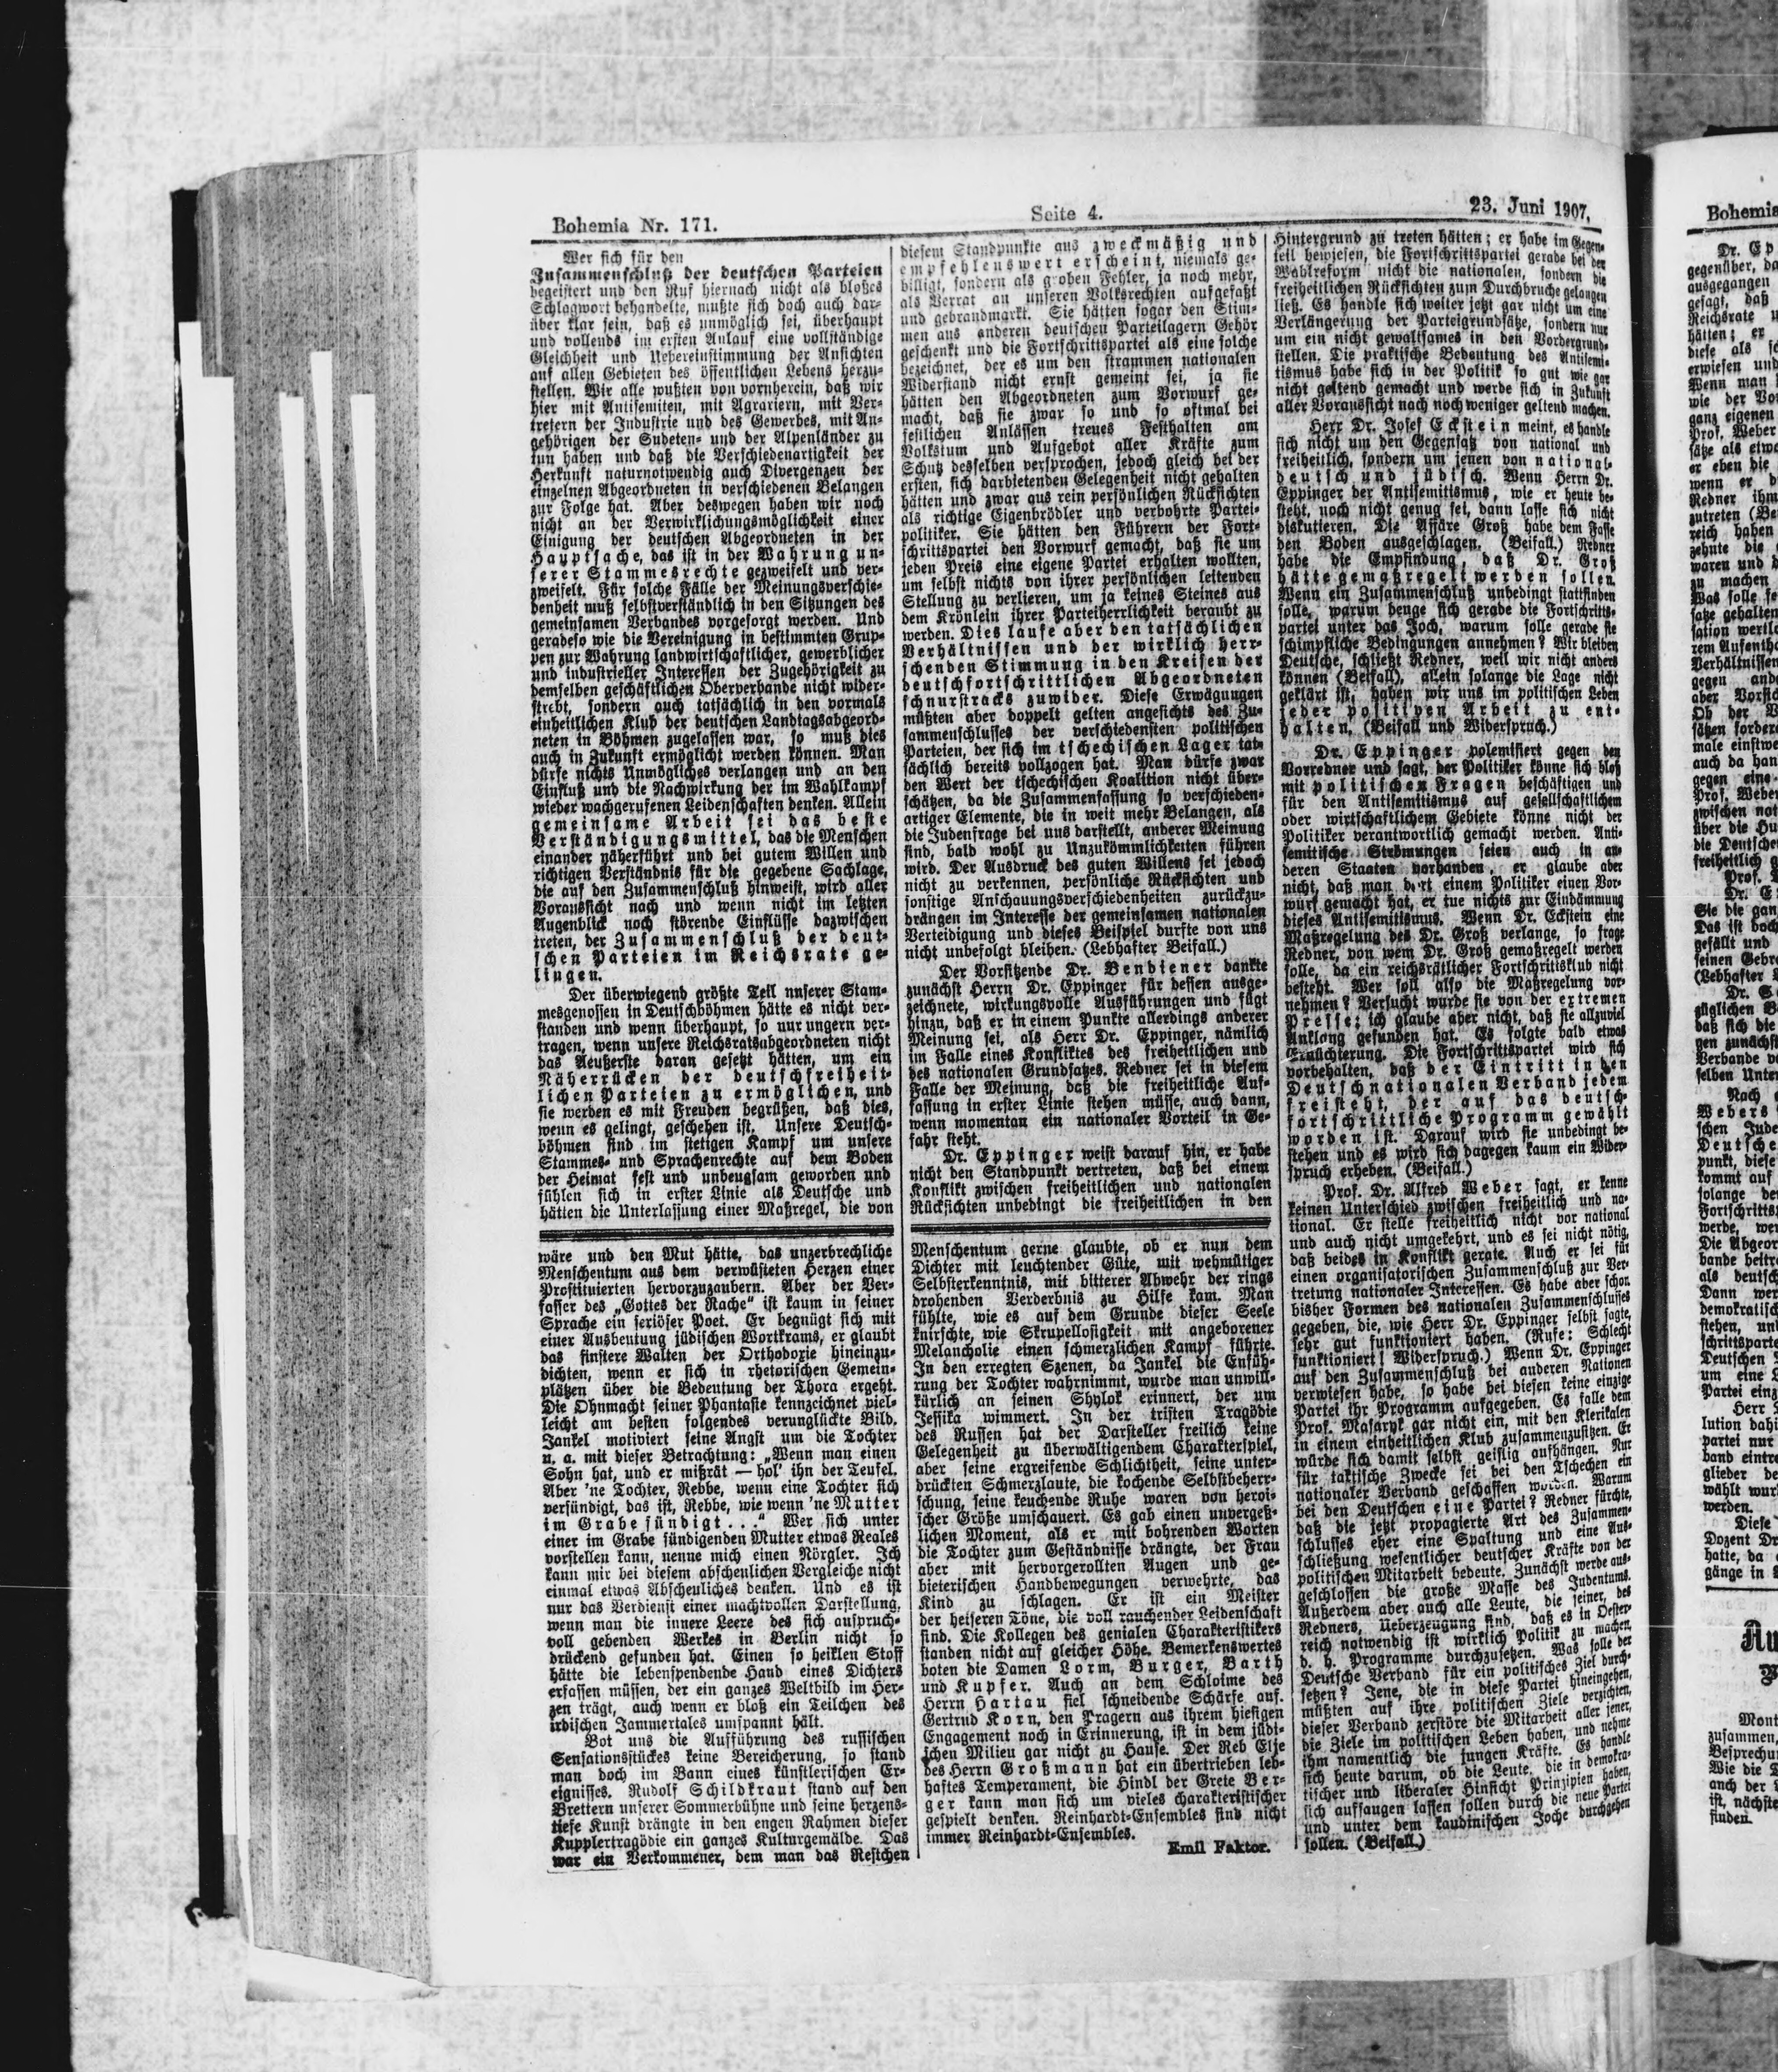 Bohemia Nr. 171.
Seite 4.
23. Juni 1907.
Wer sich für den
Zusammenschluß der deutschen Parteien
begeistert und den Ruf hiernach nicht als bloßes
Schlagwort behandelte, mußte sich doch auch dar-
über klar sein, daß es unmöglich sei, überhaupt
und vollends im ersten Anlauf eine vollständige
Gleichheit und Uebereinstimmung der Ansichten
auf allen Gebieten des öffentlichen Lebens herzu-
stellen. Wir alle wußten von vornherein, daß wir
hier mit Antisemiten, mit Agrariern, mit Ver-
tretern der Industrie und des Gewerbes, mit An-
gehörigen der Sudeten- und der Alpenländer zu
tun haben und daß die Verschiedenartigkeit der
Herkunft naturnotwendig auch Divergenzen der
einzelnen Abgeordneten in verschiedenen Belangen
zur Folge hat. Aber deswegen haben wir noch
nicht an der Verwirklichungsmöglichkeit einer
Einigung der deutschen Abgeordneten in der
Hauptsache, das ist in der Wahrung un-
serer Stammesrechte gezweifelt und ver-
zweifelt. Für solche Fälle der Meinungsverschie-
denheit muß selbstverständlich in den Sitzungen des
gemeinsamen Verbandes vorgesorgt werden. Und
geradeso wie die Vereinigung in bestimmten Grup-
pen zur Wahrung landwirtschaftlicher, gewerblicher
und industrieller Interessen der Zugehörigkeit zu
demselben geschäftlichen Oberverbande nicht wider-
strebt, sondern auch tatsächlich in den vormals
einheitlichen Klub der deutschen Landtagsabgeord-
neten in Böhmen zugelassen war, so muß dies
auch in Zukunft ermöglicht werden können. Man
dürfe nichts Unmögliches verlangen und an den
Einfluß und die Nachwirkung der im Wahlkampf
wieder wachgerufenen Leidenschaften denken. Allein
gemeinsame Arbeit sei das beste
Verständigungsmittel, das die Menschen
einander näherführt und bei gutem Willen und
richtigen Verständnis für die gegebene Sachlage,
die auf den Zusammenschluß hinweist, wird aller
Voraussicht nach und wenn nicht im letzten
Augenblick noch störende Einflüsse dazwischen
treten, der Zusammenschluß der deut-
schen Parteien im Reichsrate ge-
lingen.
Der überwiegend größte Teil unserer Stam-
mesgenossen in Deutschböhmen hätte es nicht ver-
standen und wenn überhaupt, so nur ungern ver-
tragen, wenn unsere Reichsratsabgeordneten nicht
das Aeußerste daran gesetzt hätten, um ein
Näherrücken der deutschfreiheit-
lichen Parteien zu ermöglichen, und
sie werden es mit Freuden begrüßen, daß dies,
wenn es gelingt, geschehen ist. Unsere Deutsch-
böhmen sind im stetigen Kampf um unsere
Stammes- und Sprachenrechte auf dem Boden
der Heimat fest und unbeugsam geworden und
fühlen sich in erster Linie als Deutsche und
hätten die Unterlassung einer Maßregel, die von
diesem Standpunkte aus zweckmäßig und
empfehlenswert erscheint, niemals ge-
billigt, sondern als groben Fehler, ja noch mehr,
als Verrat an unseren Volksrechten aufgefaßt
und gebrandmarkt. Sie hätten sogar den Stim-
men aus anderen deutschen Parteilagern Gehör
geschenkt und die Fortschrittspartei als eine solche
bezeichnet, der es um den strammen nationalen
Widerstand nicht ernst gemeint sei, ja sie
hätten den Abgeordneten zum Vorwurf ge-
macht, daß sie zwar so und so oftmal bei
festlichen Anlässen treues Festhalten am
Volkstum und Aufgebot aller Kräfte zum
Schutz desselben versprochen, jedoch gleich bei der
ersten, sich darbietenden Gelegenheit nicht gehalten
hätten und zwar aus rein persönlichen Rücksichten
als richtige Eigenbrödler und verbohrte Partei-
politiker. Sie hätten den Führern der Fort-
schrittspartei den Vorwurf gemacht, daß sie um
jeden Preis eine eigene Partei erhalten wollten,
um selbst nichts von ihrer persönlichen leitenden
Stellung zu verlieren, um ja keines Steines aus
dem Krönlein ihrer Parteiherrlichkeit beraubt zu
werden. Dies laufe aber den tatsächlichen
Verhältnissen und der wirklich herr-
schenden Stimmung in den Kreisen der
deutschfortschrittlichen Abgeordneten
schnurstracks zuwider. Diese Erwägungen
müßten aber doppelt gelten angesichts des Zu-
sammenschlusses der verschiedensten politischen
Parteien, der sich im tschechischen Lager tat-
sächlich bereits vollzogen hat. Man dürfe zwar
den Wert der tschechischen Koalition nicht über-
schätzen, da die Zusammenfassung so verschieden-
artiger Elemente, die in weit mehr Belangen, als
die Judenfrage bei uns darstellt, anderer Meinung
sind, bald wohl zu Unzukömmlichkeiten führen
wird. Der Ausdruck des guten Willens sei jedoch
nicht zu verkennen, persönliche Rücksichten und
sonstige Anschauungsverschiedenheiten zurückzu-
drängen im Interesse der gemeinsamen nationalen
Verteidigung und dieses Beispiel durfte von uns
nicht unbefolgt bleiben. (Lebhafter Beifall.)
Der Vorsitzende Dr. Bendiener dankte
zunächst Herrn Dr. Eppinger für dessen ausge-
zeichnete, wirkungsvolle Ausführungen und fügt
hinzu, daß er in einem Punkte allerdings anderer
Meinung sei, als Herr Dr. Eppinger, nämlich
im Falle eines Konfliktes des freiheitlichen und
des nationalen Grundsatzes. Redner sei in diesem
Falle der Meinung, daß die freiheitliche Auf-
fassung in erster Linie stehen müsse, auch dann,
wenn momentan ein nationaler Vorteil in Ge-
fahr steht.
Dr. Eppinger weist darauf hin, er habe
nicht den Standpunkt vertreten, daß bei einem
Konflikt zwischen freiheitlichen und nationalen
Rücksichten unbedingt die freiheitlichen in den
Hintergrund zu treten hätten; er habe im Gegen-
teil bewiesen, die Fortschrittspartei gerade bei der
Wahlreform nicht die nationalen, sondern die
freiheitlichen Rücksichten zum Durchbruche gelangen
ließ. Es handle sich weiter jetzt gar nicht um eine
Verlängerung der Parteigrundsätze, sondern nur
um ein nicht gewaltsames in den Vordergrund-
stellen. Die praktische Bedeutung des Antisemi-
tismus habe sich in der Politik so gut wie gar
nicht geltend gemacht und werde sich in Zukunft
aller Voraussicht nach noch weniger geltend machen.
Herr Dr. Josef Eckstein meint, es handle
sich nicht um den Gegensatz von national und
freiheitlich, sondern um jenen von national-
deutsch und jüdisch. Wenn Herrn Dr.
Eppinger der Antisemitismus, wie er heute be-
steht, noch nicht genug sei, dann lasse sich nicht
diskutieren. Die Affäre Groß habe dem Fasse
den Boden ausgeschlagen. (Beifall.) Redner
habe die Empfindung, daß Dr. Groß
hätte gemaßregelt werden sollen.
Wenn ein Zusammenschluß unbedingt stattfinden
solle, warum beuge sich gerade die Fortschritts-
partei unter das Joch, warum solle gerade sie
schimpfliche Bedingungen annehmen? Wir bleiben
Deutsche, schließt Redner, weil wir nicht anders
können (Beifall), allein solange die Lage nicht
geklärt ist, haben wir uns im politischen Leben
jeder positiven Arbeit zu ent-
halten. (Beifall und Widerspruch.)
Dr. Eppinger polemisiert gegen den
Vorredner und sagt, der Politiker könne sich bloß
mit politischen Fragen beschäftigen und
für den Antisemitismus auf gesellschaftlichem
oder wirtschaftlichem Gebiete könne nicht der
Politiker verantwortlich gemacht werden. Anti-
semitische Strömungen seien auch in an-
deren Staaten vorhanden, er glaube aber
nicht, daß man dort einem Politiker einen Vor-
wurf gemacht hat, er tue nichts zur Eindämmung
dieses Antisemitismus. Wenn Dr. Eckstein eine
Maßregelung des Dr. Groß verlange, so frage
Redner, von wem Dr. Groß gemaßregelt werden
solle, da ein reichsrätlicher Fortschrittsklub nicht
besteht. Wer soll also die Maßregelung vor-
nehmen? Versucht wurde sie von der extremen
Presse; ich glaube aber nicht, daß sie allzuviel
Anklang gefunden hat. Es folgte bald etwas
Ernüchterung. Die Fortschrittspartei wird sich
vorbehalten, daß der Eintritt in den
Deutschnationalen Verband jedem
freisteht, der auf das deutsch-
fortschrittliche Programm gewählt
worden ist. Darauf wird sie unbedingt be-
stehen und es wird sich dagegen kaum ein Wider-
spruch erheben. (Beifall.)
Prof. Dr. Alfred Weber sagt, er kenne
keinen Unterschied zwischen freiheitlich und na-
tional. Er stelle freiheitlich nicht vor national
und auch nicht umgekehrt, und es sei nicht nötig,
daß beides in Konflikt gerate. Auch er sei für
einen organisatorischen Zusammenschluß zur Ver-
tretung nationaler Interessen. Es habe aber schon
bisher Formen des nationalen Zusammenschlusses
gegeben, die, wie Herr Dr. Eppinger selbst sagte,
sehr gut funktioniert haben. (Rufe: Schlecht
funktioniert! Widerspruch.) Wenn Dr. Eppinger
auf den Zusammenschluß bei anderen Nationen
verwiesen habe, so habe bei diesen keine einzige
Partei ihr Programm aufgegeben. Es falle dem
Prof. Masaryk gar nicht ein, mit den Klerikalen
in einem einheitlichen Klub zusammenzusitzen. Er
würde sich damit selbst geistig aufhängen. Nur
für taktische Zwecke sei bei den Tschechen ein
nationaler Verband geschaffen worden. Warum
bei den Deutschen eine Partei? Redner fürchte,
daß die jetzt propagierte Art des Zusammen-
schlusses eher eine Spaltung und eine Aus-
schließung wesentlicher deutscher Kräfte von der
politischen Mitarbeit bedeute. Zunächst werde aus-
geschlossen die große Masse des Judentums.
Außerdem aber auch alle Leute, die seiner, des
Redners, Ueberzeugung sind, daß es in Oester-
reich notwendig ist wirklich Politik zu machen,
d. h. Programme durchzusetzen. Was solle der
Deutsche Verband für ein politisches Ziel durch-
setzen? Jene, die in diese Partei hineingehen,
müßten auf ihre politischen Ziele verzichten,
dieser Verband zerstöre die Mitarbeit aller jener,
die Ziele im politischen Leben haben, und nehme
ihm namentlich die jungen Kräfte. Es handle
sich heute darum, ob die Leute, die in demokra-
tischer und liberaler Hinsicht Prinzipien haben,
sich aufsaugen lassen sollen durch die neue Partei
und unter dem kaudinischen Joche durchgehen
sollen. (Beifall.)
wäre und den Mut hätte, das unzerbrechliche
Menschentum aus dem verwüsteten Herzen einer
Prostituierten hervorzuzaubern. Aber der Ver-
fasser des „Gottes der Rache“ ist kaum in seiner
Sprache ein seriöser Poet. Er begnügt sich mit
einer Ausbeutung jüdischen Wortkrams, er glaubt
das finstere Walten der Orthodoxie hineinzu-
dichten, wenn er sich in rhetorischen Gemein-
plätzen über die Bedeutung der Thora ergeht.
Die Ohnmacht seiner Phantasie kennzeichnet viel-
leicht am besten folgendes verunglückte Bild.
Jankel motiviert seine Angst um die Tochter
u. a. mit dieser Betrachtung: „Wenn man einen
Sohn hat, und er mißrät — hol' ihn der Teufel.
Aber 'ne Tochter, Rebbe, wenn eine Tochter sich
versündigt, das ist, Rebbe, wie wenn 'ne Mutter
im Grabe sündigt . . .“ Wer sich unter
einer im Grabe sündigenden Mutter etwas Reales
vorstellen kann, nenne mich einen Nörgler. Ich
kann mir bei diesem abscheulichen Vergleiche nicht
einmal etwas Abscheuliches denken. Und es ist
nur das Verdienst einer machtvollen Darstellung,
wenn man die innere Leere des sich anspruch-
voll gebenden Werkes in Berlin nicht so
drückend gefunden hat. Einen so heiklen Stoff
hätte die lebenspendende Hand eines Dichters
erfassen müssen, der ein ganzes Weltbild im Her-
zen trägt, auch wenn er bloß ein Teilchen des
irdischen Jammertales umspannt hält.
Bot uns die Aufführung des russischen
Sensationsstückes keine Bereicherung, so stand
man doch im Bann eines künstlerischen Er-
eignisses. Rudolf Schildkraut stand auf den
Brettern unserer Sommerbühne und seine herzens-
tiefe Kunst drängte in den engen Rahmen dieser
Kupplertragödie ein ganzes Kulturgemälde. Das
war ein Verkommener, dem man das Restchen
Menschentum gerne glaubte, ob er nun dem
Dichter mit leuchtender Güte, mit wehmütiger
Selbsterkenntnis, mit bitterer Abwehr der rings
drohenden Verderbnis zu Hilfe kam. Man
fühlte, wie es auf dem Grunde dieser Seele
knirschte, wie Skrupellosigkeit mit angeborener
Melancholie einen schmerzlichen Kampf führte.
In den erregten Szenen, da Jankel die Enfüh-
rung der Tochter wahrnimmt, wurde man unwill-
kürlich an seinen Shylok erinnert, der um
Jessika wimmert. In der tristen Tragödie
des Russen hat der Darsteller freilich keine
Gelegenheit zu überwältigendem Charakterspiel,
aber seine ergreifende Schlichtheit, seine unter-
drückten Schmerzlaute, die kochende Selbstbeherr-
schung, seine keuchende Ruhe waren von heroi-
scher Größe umschauert. Es gab einen unvergeß-
lichen Moment, als er mit bohrenden Worten
die Tochter zum Geständnisse drängte, der Frau
aber mit hervorgerollten Augen und ge-
bieterischen Handbewegungen verwehrte, das
Kind zu schlagen. Er ist ein Meister
der heiseren Töne, die voll rauchender Leidenschaft
sind. Die Kollegen des genialen Charakteristikers
standen nicht auf gleicher Höhe. Bemerkenswertes
boten die Damen Lorm, Burger, Barth
und Kupfer. Auch an dem Schloime des
Herrn Hartau fiel schneidende Schärfe auf.
Gertrud Korn, den Pragern aus ihrem hiesigen
Engagement noch in Erinnerung, ist in dem jüdi-
schen Milieu gar nicht zu Hause. Der Reb Elje
des Herrn Großmann hat ein übertrieben leb-
haftes Temperament, die Hindl der Grete Ber-
ger kann man sich um vieles charakteristischer
gespielt denken. Reinhardt-Ensembles sind nicht
immer Reinhardt-Ensembles.
Emil Faktor.
Bohemia
Dr. Ep
gegenüber, da
ausgegangen
gesagt, daß
Reichsrate
hätten; er
diese als
erwiesen und
Wenn man
wie der Vo
ganz eigenen
Prof. Weber
sätze als etwa
er eben die
wenn er
Redner ihm
zutreten (Be
reich haben
zehnte die
waren und
zu machen
Was solle
satze gehalten
sation
rem
Verhältnissen
gegen ande
aber
Ob der V
sätzen
male einstwe
auch da han
gegen eine
Prof. Weber
zwischen nat
über die Hu
die Deutschen
freiheitlich
Prof.
Dr. E
Sie die gan
Das ist doch
gefällt und
seinen Gebr
(Lebhafter
Dr.
züglichen
daß sich die
gen zunächst
Verbande
selben Unter
Nach
Webers
schen Jude
Deutsche
punkt, diese
kommt auf
solange
Fortschritts
werde, wen
Die Abgeor
bande beitre
als deutsch
Dann wer
demokratisch
stehen, und
schrittsparte
Deutschen
um eine
Partei einz
Herr
lution dahi
partei nur
band eintre
glieder de
wählt wur
werden.
Diese
Dozent Dr
hatte, da
gänge in
Mont
zusammen,
Besprechu
Wie die
auch der
ist, nächste
finden.